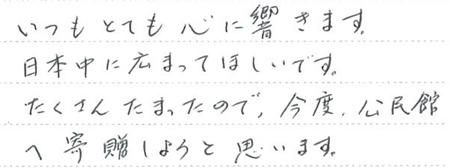 いつもとても心に響きます。
日本中に広まってほしいです。
たくさんたまったので、今度、公民館
へ寄贈しようと思います。